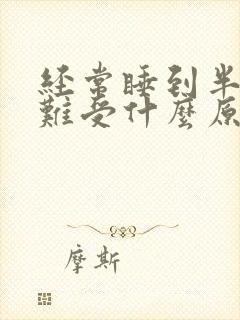 经常睡到半
難受什麼原
摩斯